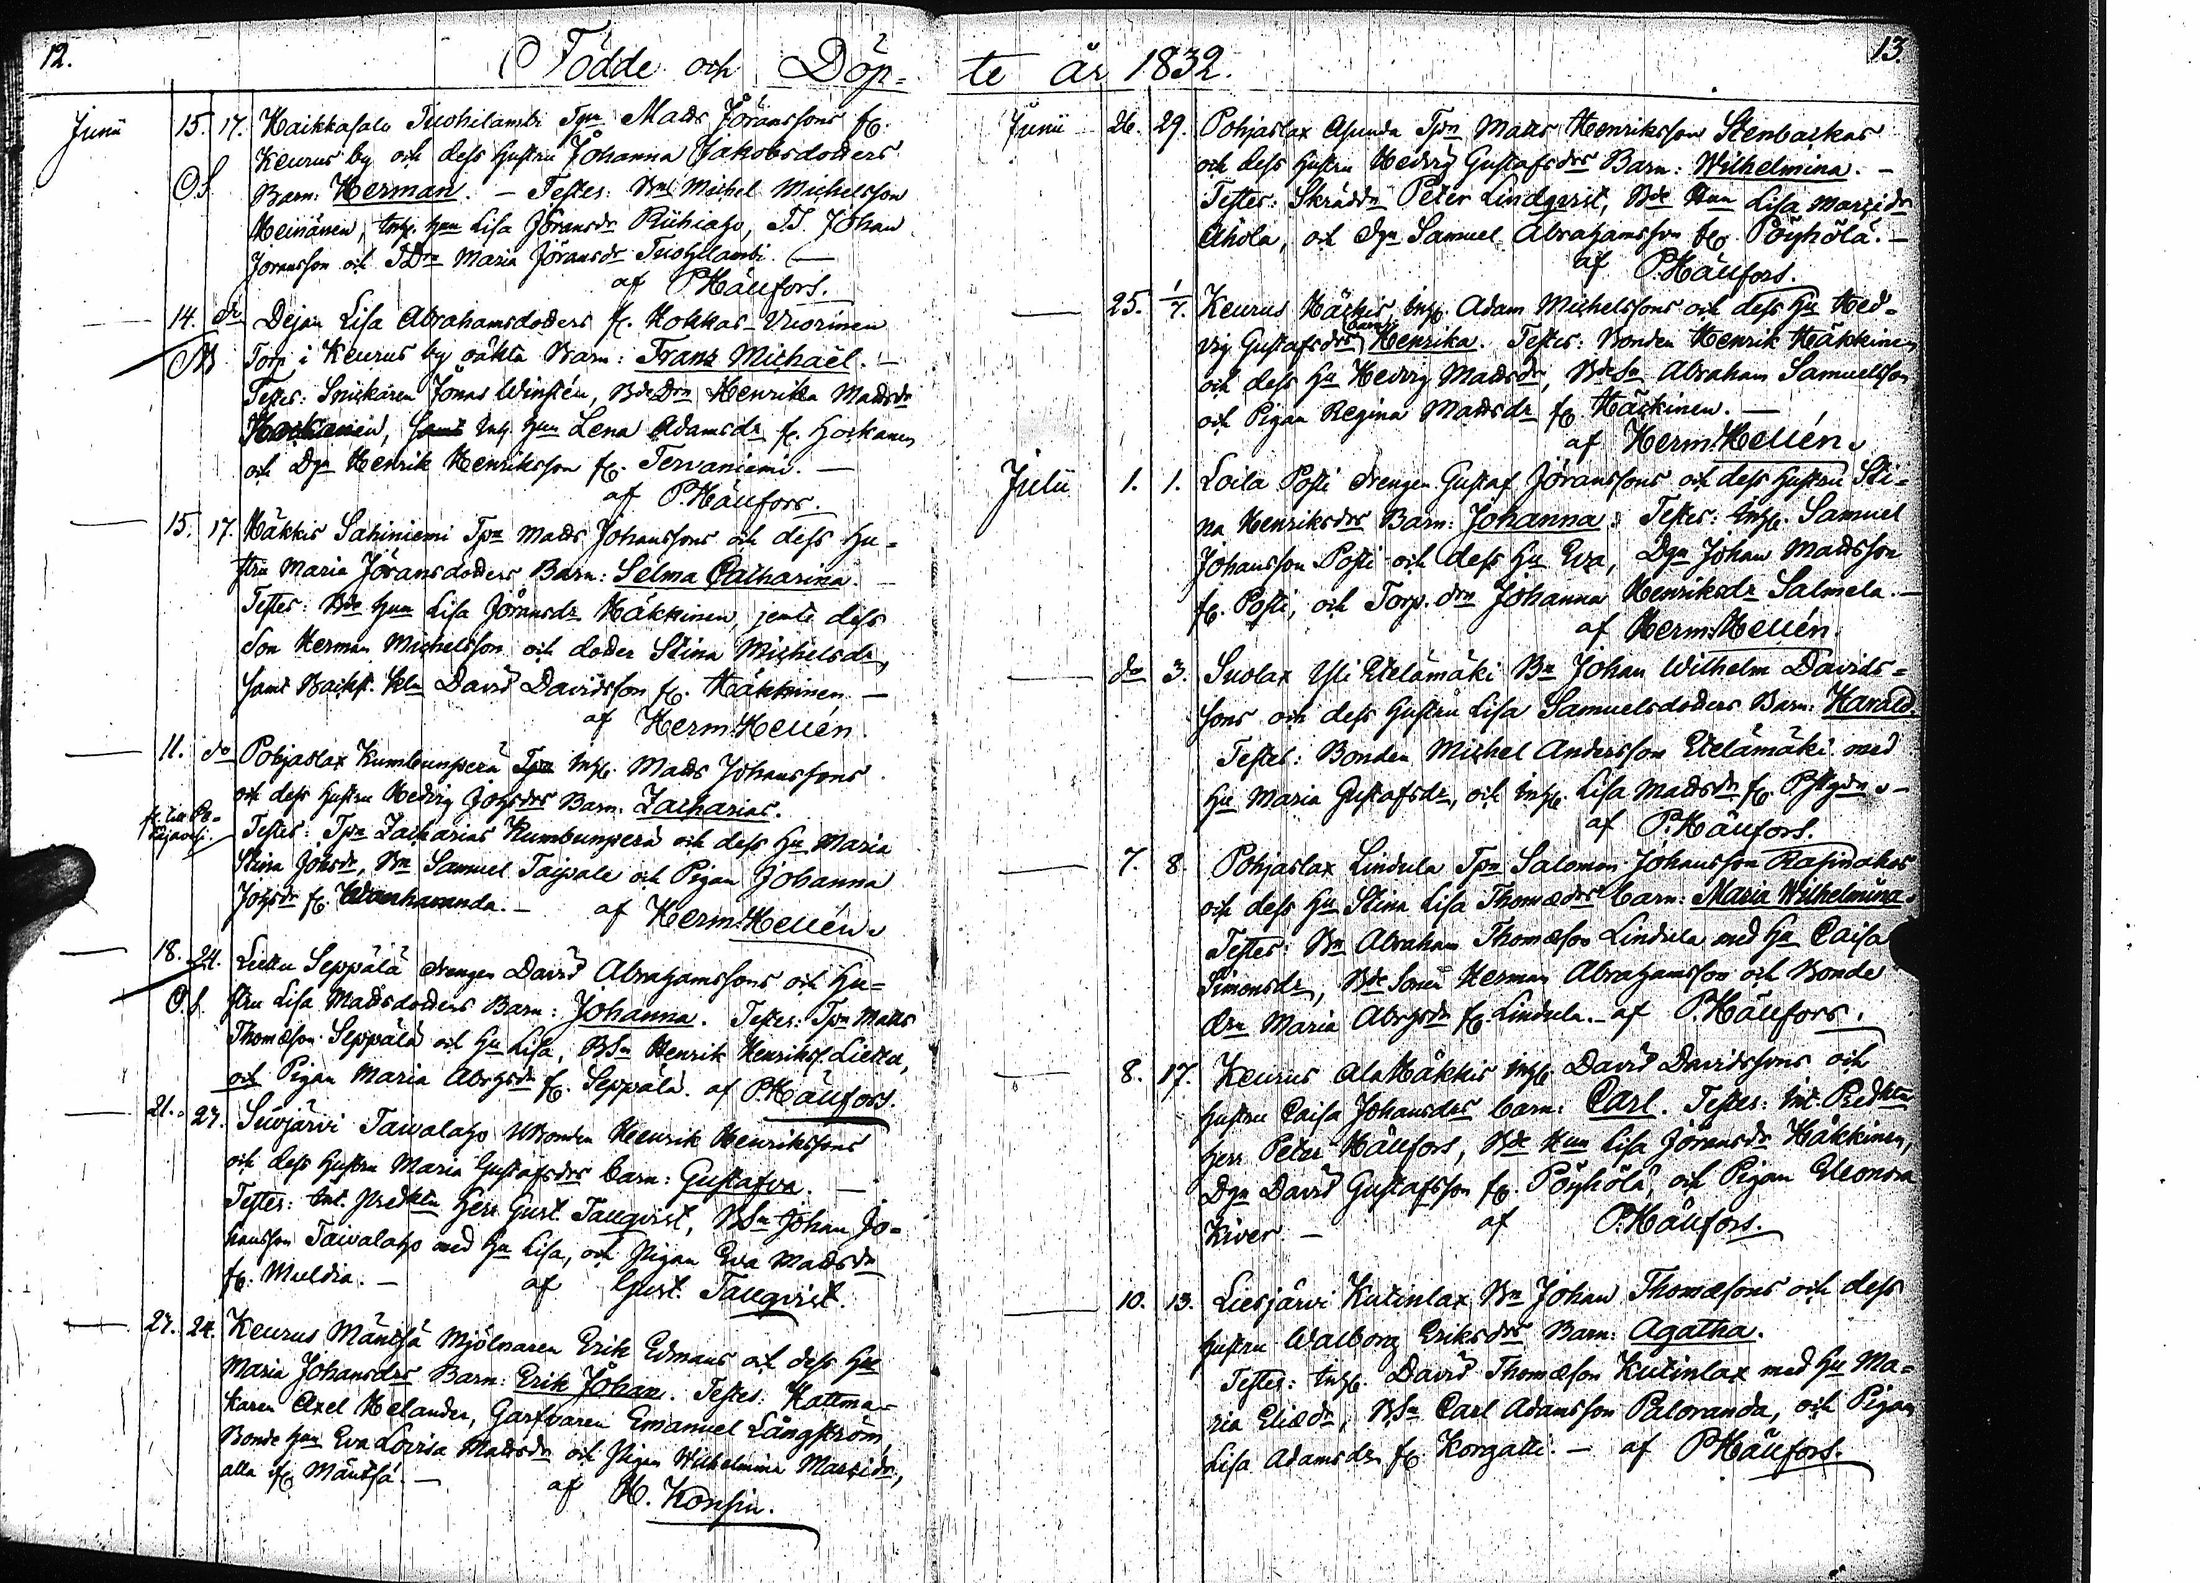 12.
Födde och Döp-
Junii 15. 17. Haikkasalo Tuohilambi Tpn Matts Jöranssons fr.
Keurus by och dess hustru Johanna Jakobsdotters
OS Barn: Herman. – Testes: Bn Michel Michelsson
Meinänen, Inh. hun Lisa Jöransdr Riihiaho, TS. Johan
Joransson och TDrn Maria Jöransdr Tuohilambi. –
af P. Hällfors.
14. do Dejan Lisa Abrahamsdotters fr. Kokkas-Vuorinen
OB Torp i Keurus by oäkta Barn: Frans Michaël. –
Testes: Snickaren Jonas Winstén, BdeDrn Henrika Mattsdr
Inh. hun Lena Adamsdr fr.
och Dgn Henrik Henriksson fr. Tervaniemi. –
af P. Hällfors.
15. 17. Häkkis Sahiniemi Tpn Matts Johanssons och dess Hu-
stru Maria Jöransdotters Barn: Selma Catharina. –
Testes: Bde hun Lisa Jöransdr Häkkinen, jemte dess
Son Herman Michelsson och dotter Stina Michelsdr,
samt David Davidsson fr. Häkkinen –
af Herm. Hellén.
11. do Pohjaslax Kumbunperä Tpn Inh. Matts Johanssons
och dess hustru Hedvig Johsdrs Barn: Zacharias.
Testes: Tpn Zacharias Kumbunperä och dess Hu Maria
Stina Johsdr, Bn Samuel Taipale och Pigan Johanna
Johsdr fr. –
af Herm. Hellén.
18. 24. Liettu Seppälä drengen David Abrahamssons och Hu-
O.S. stru Lisa Mattsdotters Barn: Johanna. Testes: Tpn Matts
Thomæson Seppälä och Hu Lisa, BSn Henrik Henrikss. Liettu,
och Pigan Maria Abrhsdr fr. Seppälä. af P. Hällfors.
21. 23. Suojärvi Taivalaho Bonden Henrik Henrikssons
och dess Hustru Maria Gustafsdrs barn: Gustafva. –
Testes: Predktn Herr Gust. Tallqvist, BSn Johan Jo-
hansson Taivalaho med Hu Lisa, och Pigan Eva Mattsdr
fr. Muldia. –
af Gust. Tallqvist.
23. 24. Keurus Mänttä Mjölnaren Erik Edmans och dess Hu
Maria Johansdrs Barn: Erik Johan. Testes: Hattma-
karen Axel Helander, Garfvaren Emanuel Långström,
Bonde hun Eva Lovisa Mattsdr och Pigan Wilhelmina Marcidr,
alla fr. Mänttä. –
af H. Konsin.
13.
te år 1832.
Junii 26. 29. Pohjaslax Asunda Tpn Matts Henriksson Stenbackas
och dess hustru Hedvig Gustafsdrs Barn: Wilhelmina. –
Testes: Skräddn Peter Lindqvist, Bde hun Lisa Marcidr
Ahola, och Dgn Samuel Abrahamsson fr. Pöyhölä. –
af P. Hällfors.
25. 1/7. Keurus Häckis, Inh. Adam Michelssons och dess Hu Hed-
vig Gustafsdrs barn: Henrika. Testes: Bonden Henrik Häkkinen
och dess Hu Hedvig Mattsdr, BdeSn Abraham Samuelsson
och Pigan Regina Mattsdr fr. Häckinen. –
af Herm. Hellén.
Julii 1. 1. Loila Posti drengen Gustaf Jöranssons och dess hustru Sti-
na Henriksdrs Barn: Johanna: Testes: Inh. Samuel
Johansson Posti och dess Hu Eva, Dgn Johan Mattsson
fr. Posti, och Torp. drn Johanna Henriksdr Salmela. –
af Herm: Hellén.
do 3. Suolax Yli Etelämäki Bn Johan Wilhelm Davids-
sons och dess hustru Lisa Samuelsdotters Barn: Harald.
Testes: Bonden Michel Andersson Etelämäki med
Hu Maria Gustafsdr, och Inh. Lisa Mattsdr fr. –
af P. Hällfors.
7. 8. Pohjaslax Lindula Tpn Salomon Johansson
och dess Hu Stina Lisa Thomædrs barn: Maria Wilhelmina.
Testes: Bn Abraham Thomæson Lindula med Hu Caisa
Simonsdr, Bde Sonen Herman Abrahamsson och Bonde
drn Maria Abrhsdr fr. Lindula. – af P. Hällfors.
8. 17. Keurus Ala Häkkis Inh. David Davidssons och
hustru Caisa Johansdrs barn: Carl. Testes: Predktn
Herr Peter Hällfors, Bde hun Lisa Jöransdr Häkkinen,
Dgn David Gustafsson fr. Pöyhölä, och Pigan Eleonora
Kiver –
af P. Hällfors.
10. 13. Liesjärvi Kutinlax Bn Johan Thomæsons och dess
hustru Walborg Eriksdrs Barn: Agatha.
Testes: Inh. David Thomæson Kutinlax med Hu Ma-
ria Eliædr, BSn Carl Adamsson Paloranda, och Pigan
Lisa Adamsdr fr. Korgatti. – af P. Hällfors.